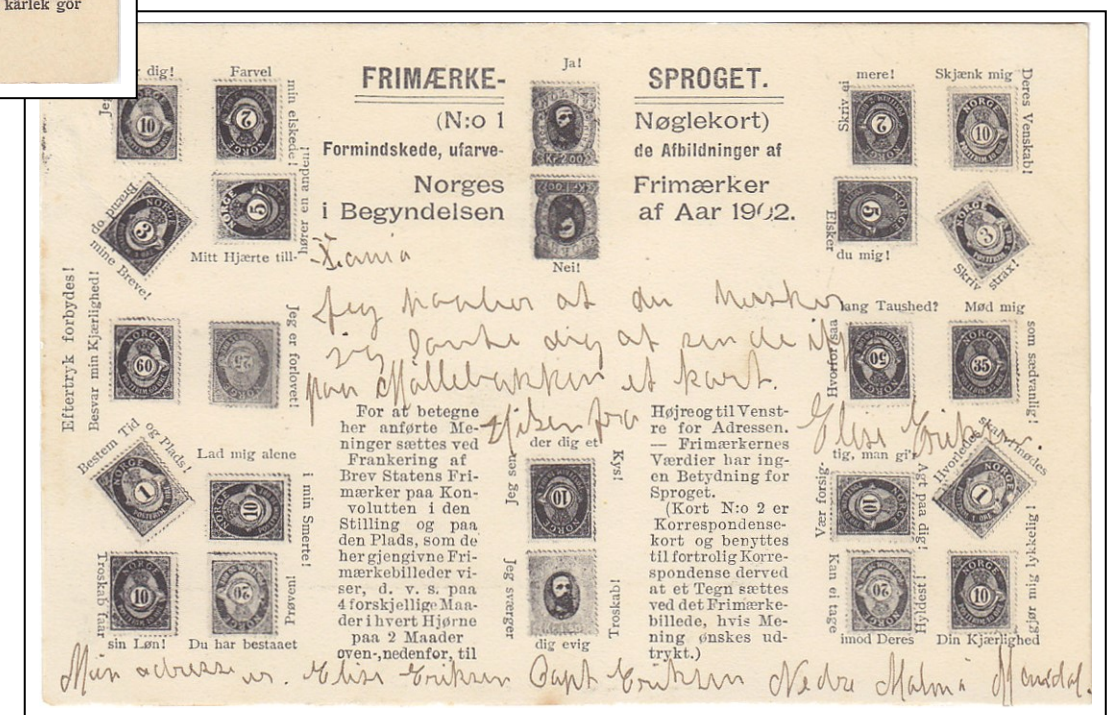 kärlek gör
FRIMÆRKE-SPROGET.
(N:o 1 Nøglekort)
Formindskede, ufarvede Afbildninger af
Norges Frimærker
i Begyndelsen af Aar 1902.
Ja!
Nei!
dig!
Farvel
min elskede!
Brænd op
mine Breve!
Mitt Hjærte till-
hører en anden!
Eftertryk forbydes!
Besvar min Kjærlighed!
Jeg er forlovet!
Bestem Tid
og Plads!
Lad mig alene
i min Smerte!
Troskab faar
sin Løn!
Du har bestaaet
Prøven!
Skriv ei
mere!
Skjænk mig
Deres Venskab!
Elsker
du mig!
Skriv
strax!
Hvorfor saa
lang Taushed?
Mød mig
som sædvanlig!
Vær forsig-
tig, man gi'r
Agt paa dig!
Hvorledes
skal
mødes
Kan ei tage
imod Deres
Hyldest!
Din Kjærlighed
gjør mig lykkelig!
Jeg sen
der dig et
Kys!
Jeg sværger
dig evig
Troskab!
For at betegne
her anførte Me-
ninger sættes ved
Frankering af
Brev Statens Fri-
mærker paa Kon-
volutten i den
Stilling og paa
den Plads, som de
her gjengivne Fri-
mærkebilleder vi-
ser, d. v. s. paa
4 forskjellige Maa-
der i hvert Hjørne
paa 2 Maader
oven-, nedenfor, til
Højre og til Venst-
re for Adressen.
— Frimærkernes
Værdier har ing-
en Betydning for
Sproget.
(Kort N:o 2 er
Korrespondense-
kort og benyttes
til fortrolig Korre-
spondense derved
at et Tegn sættes
ved det Frimærke-
billede, hvis Me-
ning ønskes ud-
trykt.)
Jeg haaber at du husker
jeg dig at sende
paa et kart.
Hilsen fra
Elise
Min adresse er. Elise Eriksen Capt Eriksen Nedre Malmø Mandal.